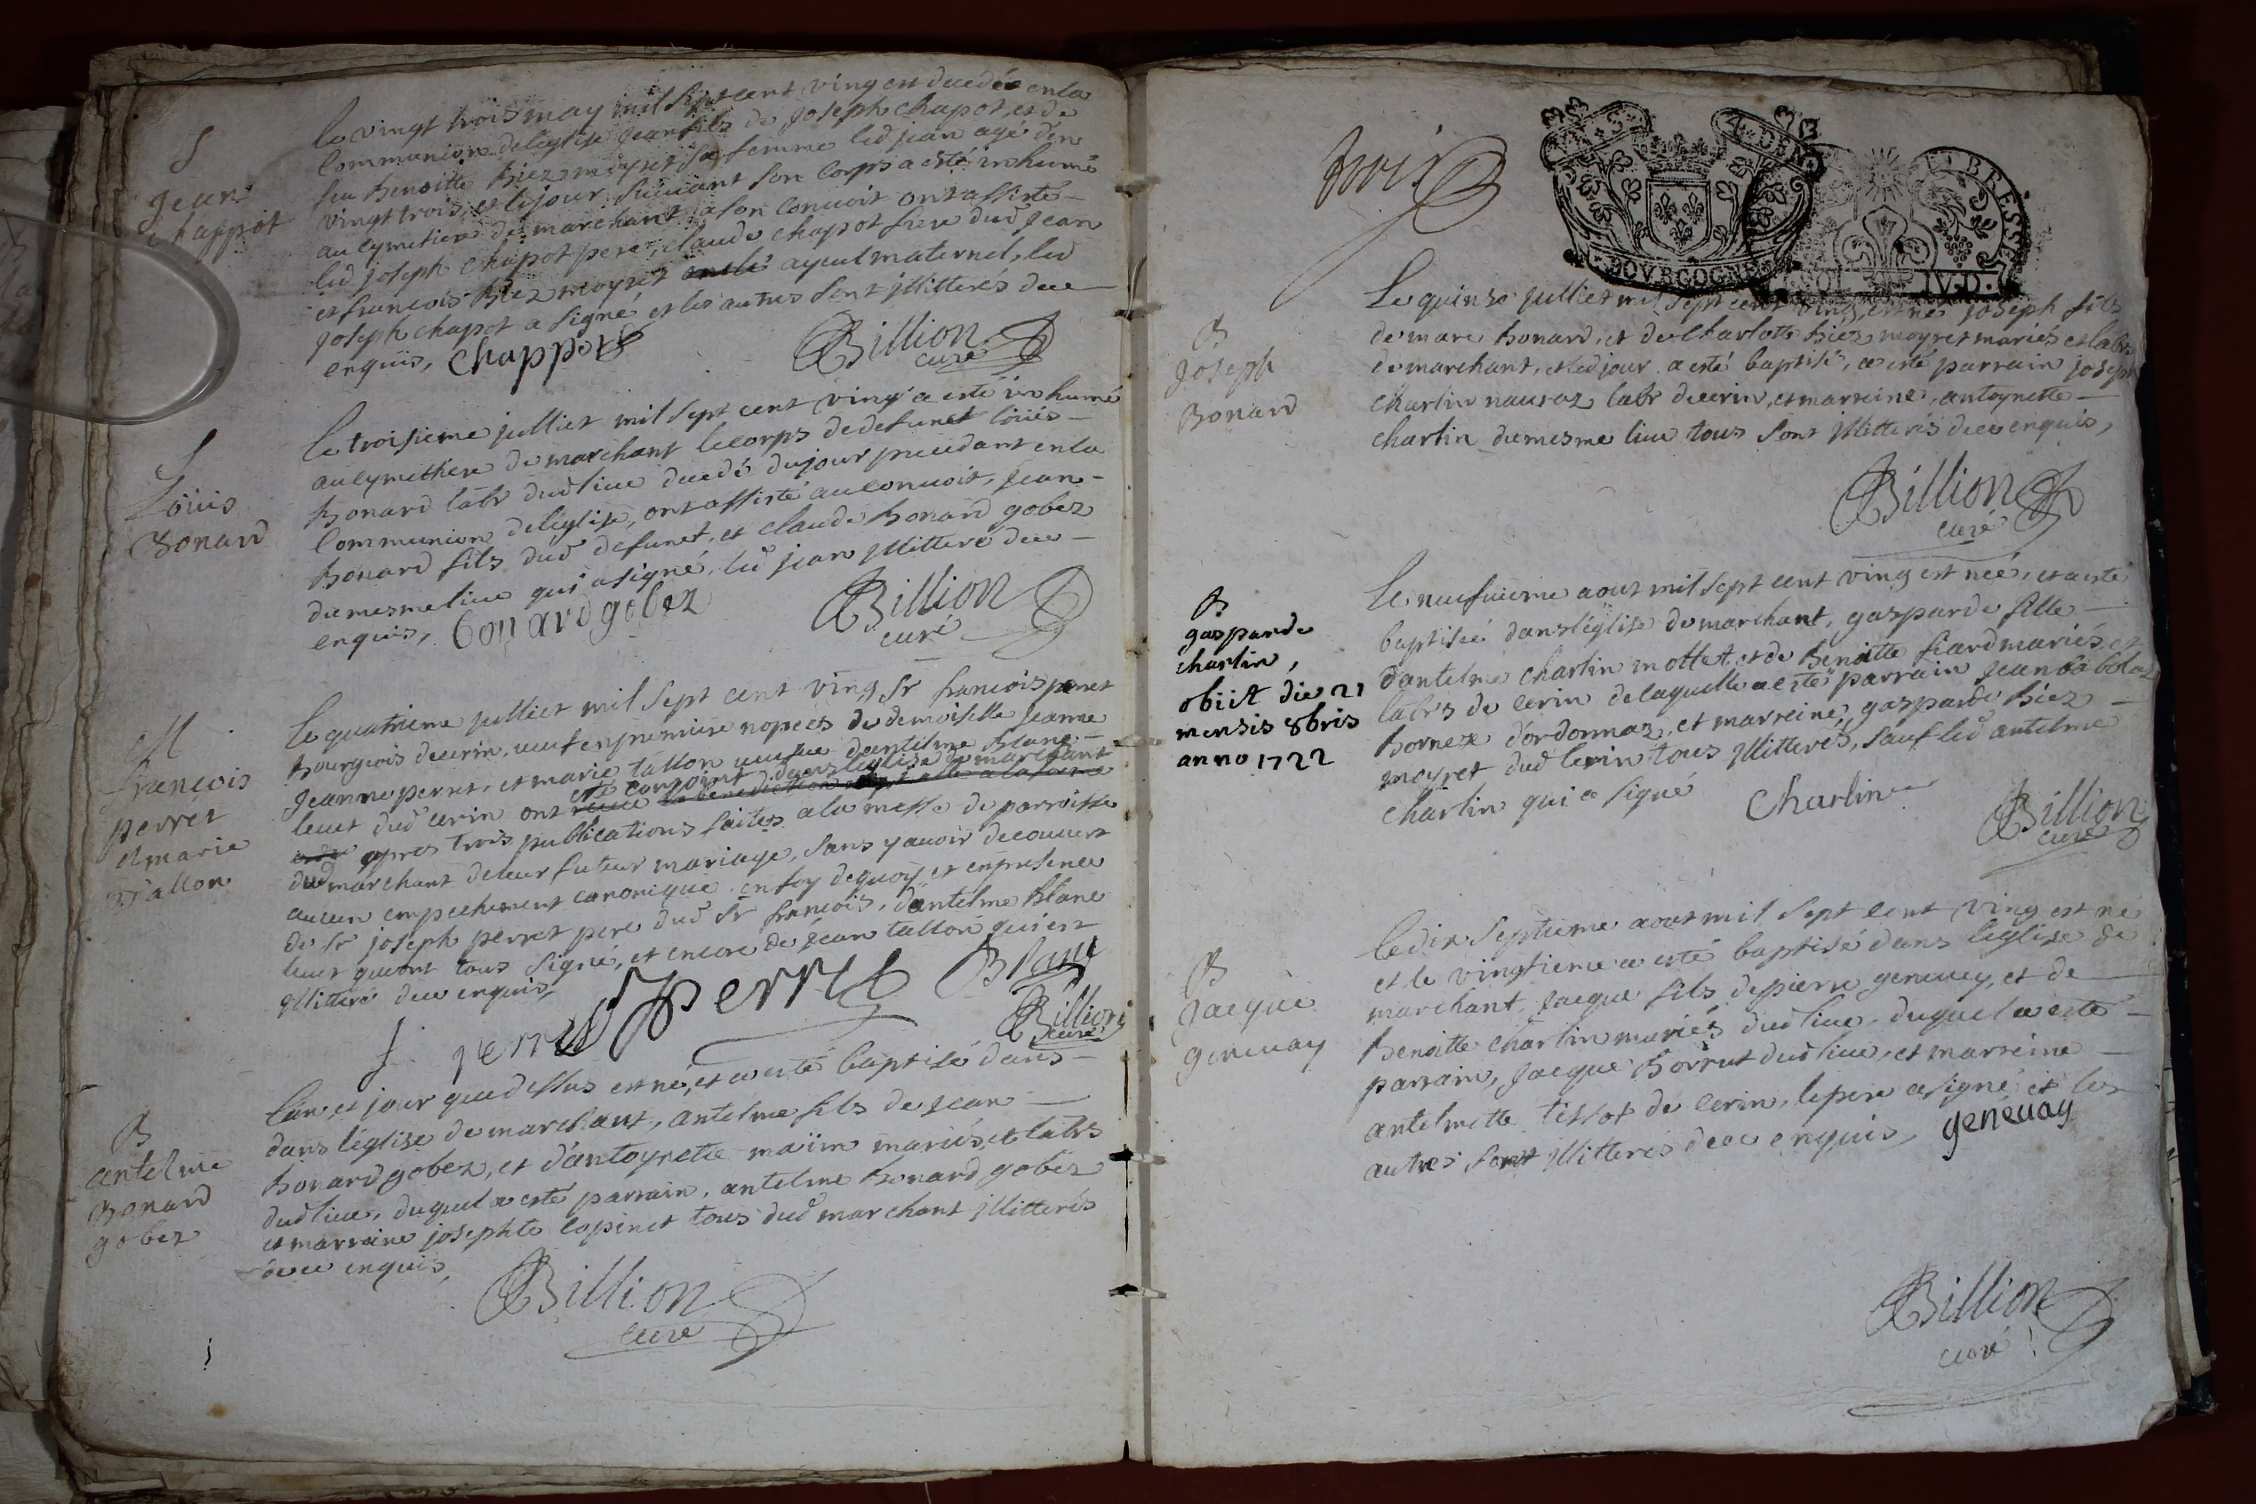 S
Jean
chappot
Le vingt trois may mil sept cent ving est decedé en la
Communion de leglise Jean fils de Joseph chapot, et de
feu Benoitte Biez moyret sa femme led jean agé d'en
vingt trois, et le jour suivant son corps a esté inhumé
au cymetiere de marchant, a son convoit ont assisté
led joseph chapot pere, claude chapot frere dud Jean
et francois Biez moyret ayeul maternel, led
joseph chapot a signé et les autres sont jllitterés de ce
enquis, Chappot
Billion
curé
S
Loüis
Bonard
Le troisieme julliet mil sept cent ving a esté inhumé
au cymethiere de marchant le corps de defunct loüis
Bonard labr dud lieu decedé du jour precedant en la
Communion de l'eglise, ont assisté au convoit, Jean
Bonard fils dud defunct, et claude Bonard gobez
du mesme lieu qui a signé, led jean jllitteré de ce
enquis, Bonard gobez
Billion
curé
M
françois
perret
et marie
Tallon
Le quatrieme julliet mil sept cent ving, Sr francois perret
Bourgeois de cerin, veuf en premiere nopces de demoiselle jeanne
Jeanne perret, et marie tallon veufve d'antelme Blanc
esté conjoint dans l'eglise de marchant
leur dud cerin ont receu la benediction
apres trois publications faites a la messe de parroisse
dud marchant de leur futeur mariage, sans y avoir decouvert
aucun empechement canonique. en foy de quoy et en presence
de Sr joseph perret pere dud Sr francois, d'antelme Blanc
leur qui ont tous signé, et encore de jean tallon qui est
jllitteré de ce enquis,
J. perret perret Blanc
Billion
curé
B
antelme
Bonard
gobez
L'an, et jour que dessus est né, et a esté baptisé dans
dans l'église de marchant, antelme fils de jean
Bonard gobez, et d'antoynette maiim mariés et labrs
dud lieu, duquel a esté parrain, antelme Bonard gobez
et marraine josephte copinet tous dud marchant jllitterés
de ce enquis,
Billion
curé
trois
BOVRGOGNE
BRESSE
B
Joseph
Bonard
Le quinze julliet mil sept cent ving, est né joseph fils
de marc Bonard, et de Charlotte Biez moyret mariés et labrs
de marchant, et led jour a esté baptisé, a esté parrain joseph
charlin nauroz labr de cerin, et marreine, antoynette
charlin du mesme lieu tous sont jllitterés de ce enquis,
Billion
curé
B
gasparde
charlin,
obiit die 21
mensis 8bris
anno 1722
Le neufvieme aout mil sept cent ving est née, et a esté
baptisée dans l'eglise de marchant, gasparde fille
d'antelme charlin mottet, et de Benoitte siard mariés, et
labrs de cerin de laquelle a esté parrain Jean
Bornex d'ordonnaz, et marreine, gasparde Biez
moyret dud cerin tous jllitterés, sauf led antelme
charlin qui a signé Charlin
Billion
curé
B
Jacque
genevay
Le dix septieme aout mil sept cent ving est né
et le vingtieme a esté baptisé dans l'église de
marchant, Jacque fils de pierre genevey, et de
Benoitte charlin mariés dud lieu, duquel a esté
parrain, Jacque Borrut dud lieu, et marreine
antelmette tissot de cerin, le pere a signé, et les
autres sont jllitteres de ce enquis, genevay
Billion
curé